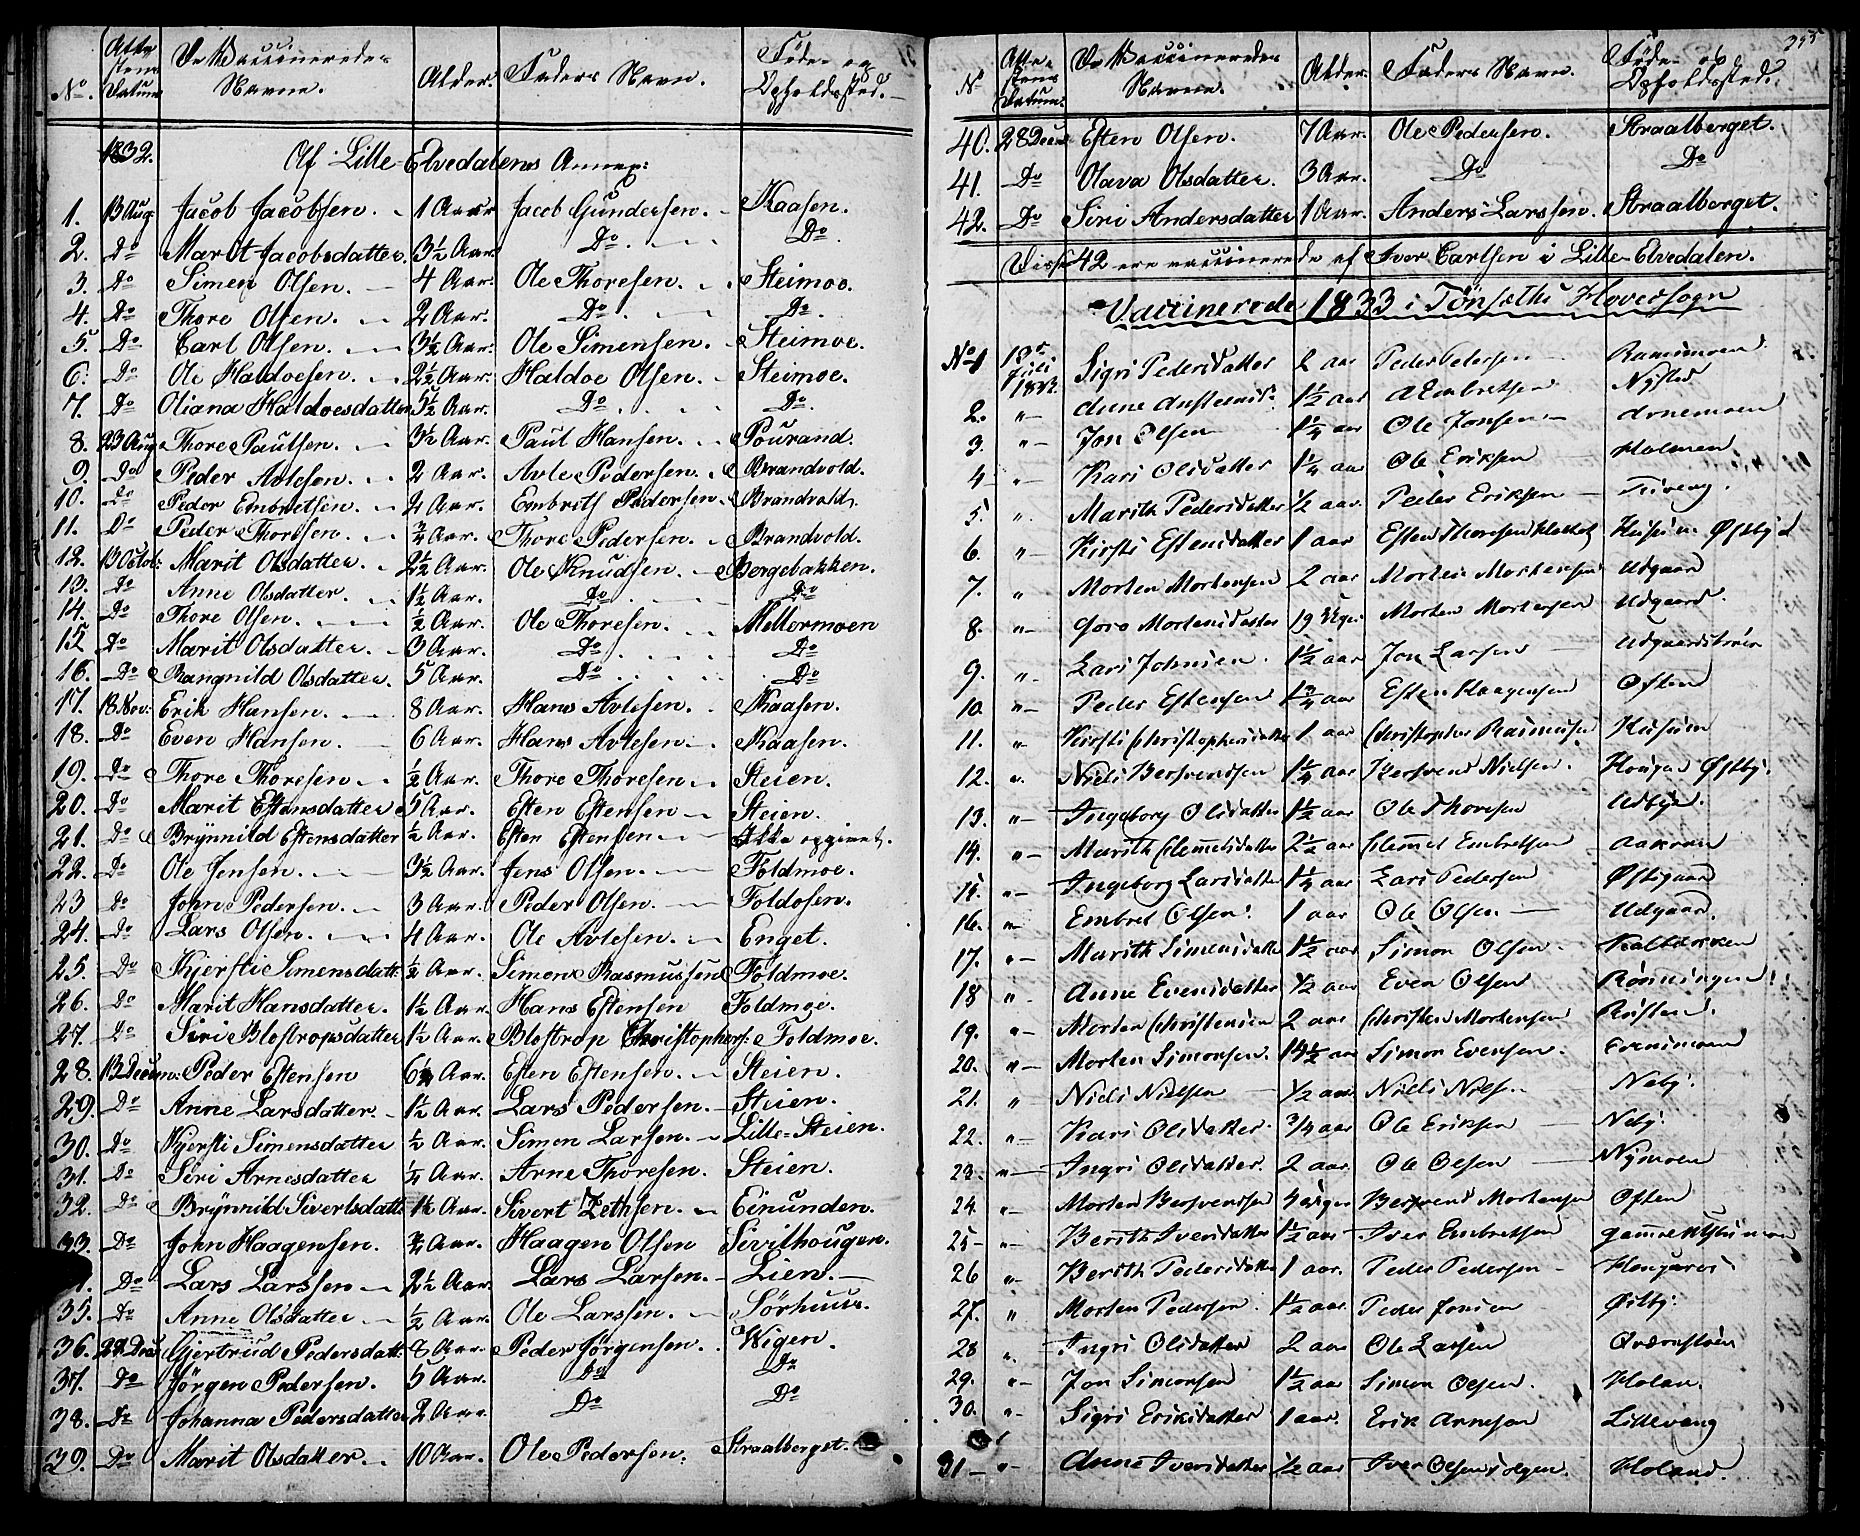 No. Attestens Datum De Vaccineredes Navne. Alder. Faders Navn. Føde- og Opholdssted.
1832. Af Lille-Elvedalens Annex:
1. 13 Aug: Jacob Jacobsen. 1 Aar Jacob Gundersen. Kaasen.
2. Do Marit Jacobsdatter. 3½ Aar Do Do
3. Do Simen Olsen. 4 Aar. Ole Thoresen. Steimoe.
4. Do Thore Olsen. 2 Aar. Do Do
5. Do Carl Olsen. 3½ Aar. Ole Simensen. Steimoe.
6. Do Ole Haldoesen. 2½ Aar. Haldoe Olsen. Steimoe.
7. Do Oliana Haldoesdatter 5½ Aar. Do Do
8. 23 Aug Thore Paulsen. 3½ Aar. Paul Hansen. Pourand.
9. Do Peder Avlesen. 2 Aar. Avle Pedersen. Brandvold.
10. Do Peder Embretsen. 4 Aar. Embreth Pedersen. Brandvold.
11. Do Peder Thoresen. ¾ Aar. Thore Pedersen. Brandvold.
12. 13 Octob: Marit Olsdatter. 2½ Aar. Ole Knudsen. Bergebakken.
13. Do Anne Olsdatter. 1½ Aar. Do Do
14. Do Thore Olsen. ½ Aar. Ole Thoresen. Mellermoen
15 Do Marit Olsdatter. 3 Aar. Do Do
16. Do Rangnild Olsdatter. 5 Aar. Do Do
17. 18 Nov: Erik Hansen. 8 Aar. Hans Avlesen. Kaasen.
18. Do Even Hansen. 6 Aar. Hans Avlesen. Kaasen.
19. Do Thore Thoresen. ½ Aar. Thore Thoresen. Steien.
20. Do Marit Estensdatter 5 Aar. Esten Estensen Steien.
21. Do Brynnild Estensdatter ½ Aar. Esten Estensen Ikke opgivet.
22. Do Ole Jensen. 3½ Aar. Jens Olsen. Foldmoe.
23 Do John Pedersen. 3 Aar. Peder Olsen. Foldosen.
24. Do Lars Olsen. 4 Aar. Ole Avlesen. Enget.
25. Do Kjersti Simensdatt: ½ Aar. Simen Rasmussen Foldmoe.
26. Do Marit Hansdatter. 1½ Aar. Hans Estensen Foldmoe.
27. Do Siri Blostropsdatter 1½ Aar. Blostrop Christophers: Foldmoe.
28. 13 Decem: Peder Estensen 6½ Aar. Esten Estensen. Steien.
29. Do Anne Larsdatter. 1½ Aar. Lars Pedersen. Steien.
30. Do Kjersti Simensdatter ½ Aar. Simen Larsen. Lille-Steien.
31. Do Siri Arnesdatter ¼ Aar. Arne Thoresen. Steien.
32. Do Brynnild Sivertsdatt: 1½ Aar. Sivert Zethsen. Einunden.
33. Do John Haagensen. ¾ Aar. Haagen Olsen Sivilhougen.
Do Lars Larssen 2½ Aar. Lars Larsen. Lien.
35. Do Anne Olsdatter ½ Aar. Ole Larssen. Sørhuus.
36. 28 Dec: Gjertrud Pedersdatt: 8 Aar. Peder Jørgensen. Wigen.
37. Do Jørgen Pedersen. 5 Aar. Do Do
38. Do Johanna Pedersdatter 2 Aar. Do Do
39. Do Marit Olsdatter. 10 Aar. Ole Pedersen. Straalberget.
395
No Attestens Datum. De Vaccineredes Navne. Alder. Faders Navn. Føde- og Opholdssted.
40. 28 Decem: Esten Olsen. 7 Aar. Ole Pedersen. Straalberget.
41. Do Olava Olsdatter. 3 Aar. Do Do
42. Do Siri Andersdatter 1 Aar. Anders Larssen. Straalberget.
Disse 42 ere vaccinerede af Iver Carlsen i Lille-Elvedalen.
Vaccinerede 1833 i Tønsæths Hovedsogn
No 1 Juli 1833. Sigri Pedersdatter 2 aar Peder Pedersen
2. 1½ aar Embretsen Nysted
3. Jon Olsen 1¼ aar Ole Jonsen Arnemoen
4 Kari Olsdatter 1¼ aar Ole Eriksen Holmen
5. Marith Pedersdatter ½ aar. Peder Eriksen
6. Kirsti Estensdatter 1 aar Esten Thoresen Husum Østby
7. Morten Mortensen 2 aar Morten Mortensen Udgaard
8. Goro Mortensdatter 19 Uger Morten Mortensen Udgaard.
9. Lars Johnsen. 1½ aar Jon Larsen
10. Peder Estensen 1¾ aar Esten Haagensen Østen
11. Kirsti Christophersdatter 1 aar Christopher Rasmussen Husum
12. Niels Bersvendsen 1¼ aar Bersvend Nielsen. Hougen Østby.
13. Ingeborg Olsdatter 1½ aar Ole Thoresen Udbye.
14. Marith Clemetsdatter 2½ aar Clemmet Embretsen Aakroen
15 Ingeborg Larsdatter 1¼ aar Lars Pedersen Østgaard
16. Embret Olsen. 1 aar Ole Olsen Udgaard.
17. Marith Simensdatter 1½ aar Simon Olsen Kalbækken
18 Anne Evensdatter ½ aar Even Olsen Rønningen
19. Morten Christensen 2 aar Christen Mortensen
20. Morten Simonsen. 1½ aar Simon Evensen. Evensmoen
21. Niels Nielsen ½ aar Niels Niels. Neby.
22. Kari Olsdatter ¾ aar Ole Eriksen Neby.
23. Ingri Olsdatter. 2 aar Ole Olsen Nymoen
24. Morten Bersvendsen Uger Bersvend Mortensen Østen
25 Berith Iversdatter 1½ aar Iver Embretsen
26 Berith Pedersdatter 1 aar. Peder Pedersen
27. Morten Pedersen. 1½ aar Peder Jonsen Østby.
28 Ingri Olsdatter 2 aar Ole Larsen
29. Jon Simonsen 1½ aar Simon Olsen. Holan.
30. Sigri Eriksdatter 1 aar. Erik Arnesen Lillevang
31 Anne Iversdatter ½ aar Iver Olsen Holand.